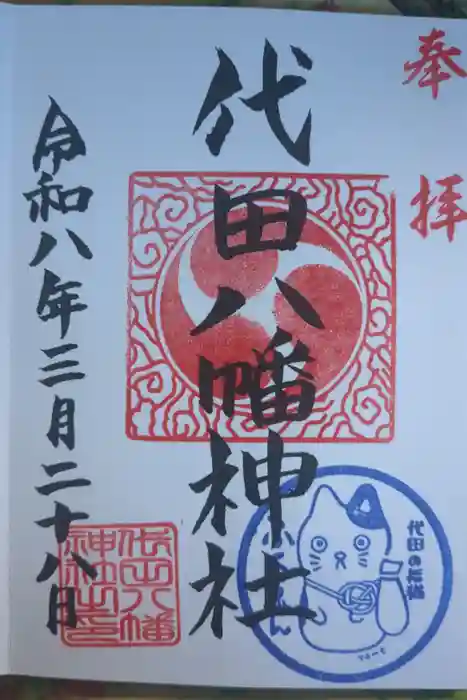 奉拝
代田八幡神社
令和八年三月二十八日
代田八幡
神社之印